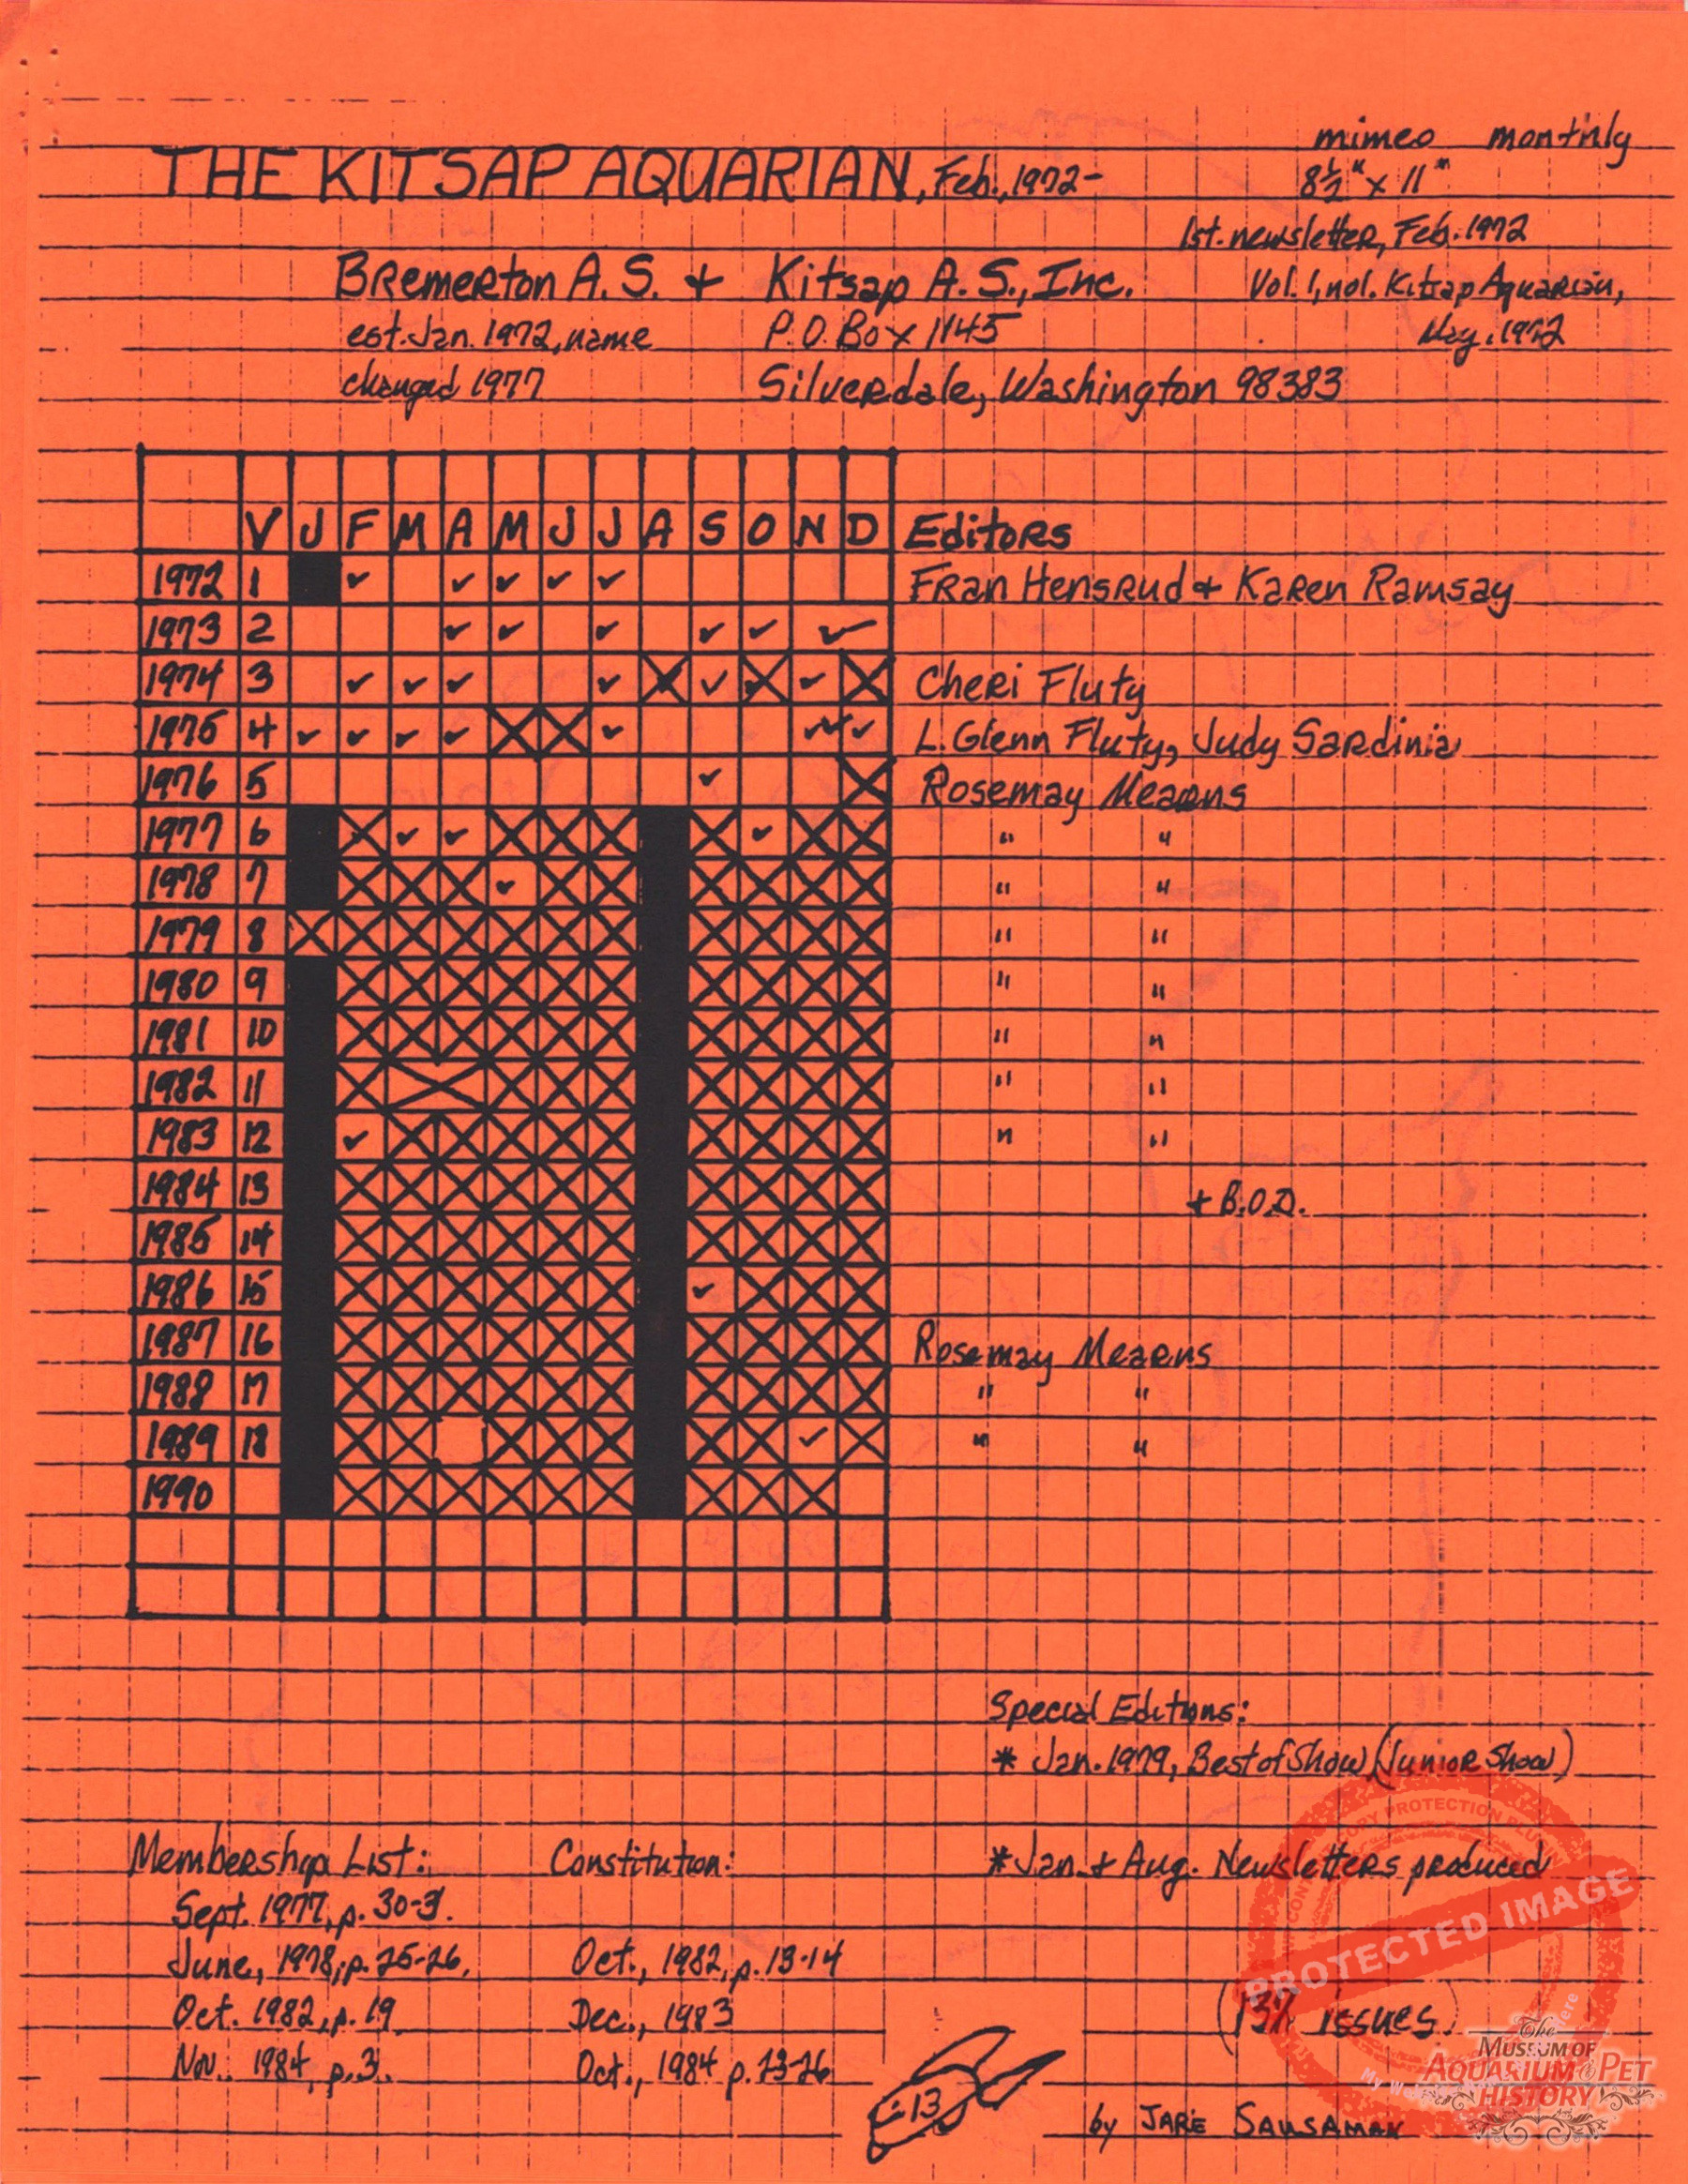 mimeo monthly
THE KITSAP AQUARIAN, Feb., 1972-
8½" x 11"
1st. newsletter, Feb. 1972
Bremerton A.S. + Kitsap A.S., Inc.
Vol. 1, no1. Kitsap Aquarian,
est. Jan. 1972, name
P.O. Box 1145
May, 1972
changed 1977
Silverdale, Washington 98383
V J F M A M J J A S O N D Editors
1972 1 Fran Hensrud + Karen Ramsay
1973 2
1974 3 Cheri Fluty
1975 4 L. Glenn Fluty, Judy Sardinia
1976 5 Rosemay Mearns
1977 6 " "
1978 7 " "
1979 8 " "
1980 9 " "
1981 10 " "
1982 11 " "
1983 12 " "
1984 13 + B.O.D.
1985 14
1986 15
1987 16 Rosemay Mearns
1988 17 " "
1989 18 " "
1990
Special Editions:
* Jan. 1979, Best of Show (Junior Show)
Membership List: Constitution:
* Jan. + Aug. Newsletters produced
Sept. 1977, p. 30-31.
June, 1978, p. 25-26,
Oct., 1982, p. 13-14
Oct. 1982, p. 19
Dec., 1983
Nov. 1984, p. 3.
Oct., 1984 p. 23-26
(137 issues)
-13
by JARE SAUSAMAN
PROTECTED IMAGE
The
MUSEUM OF
AQUARIUM & PET
HISTORY